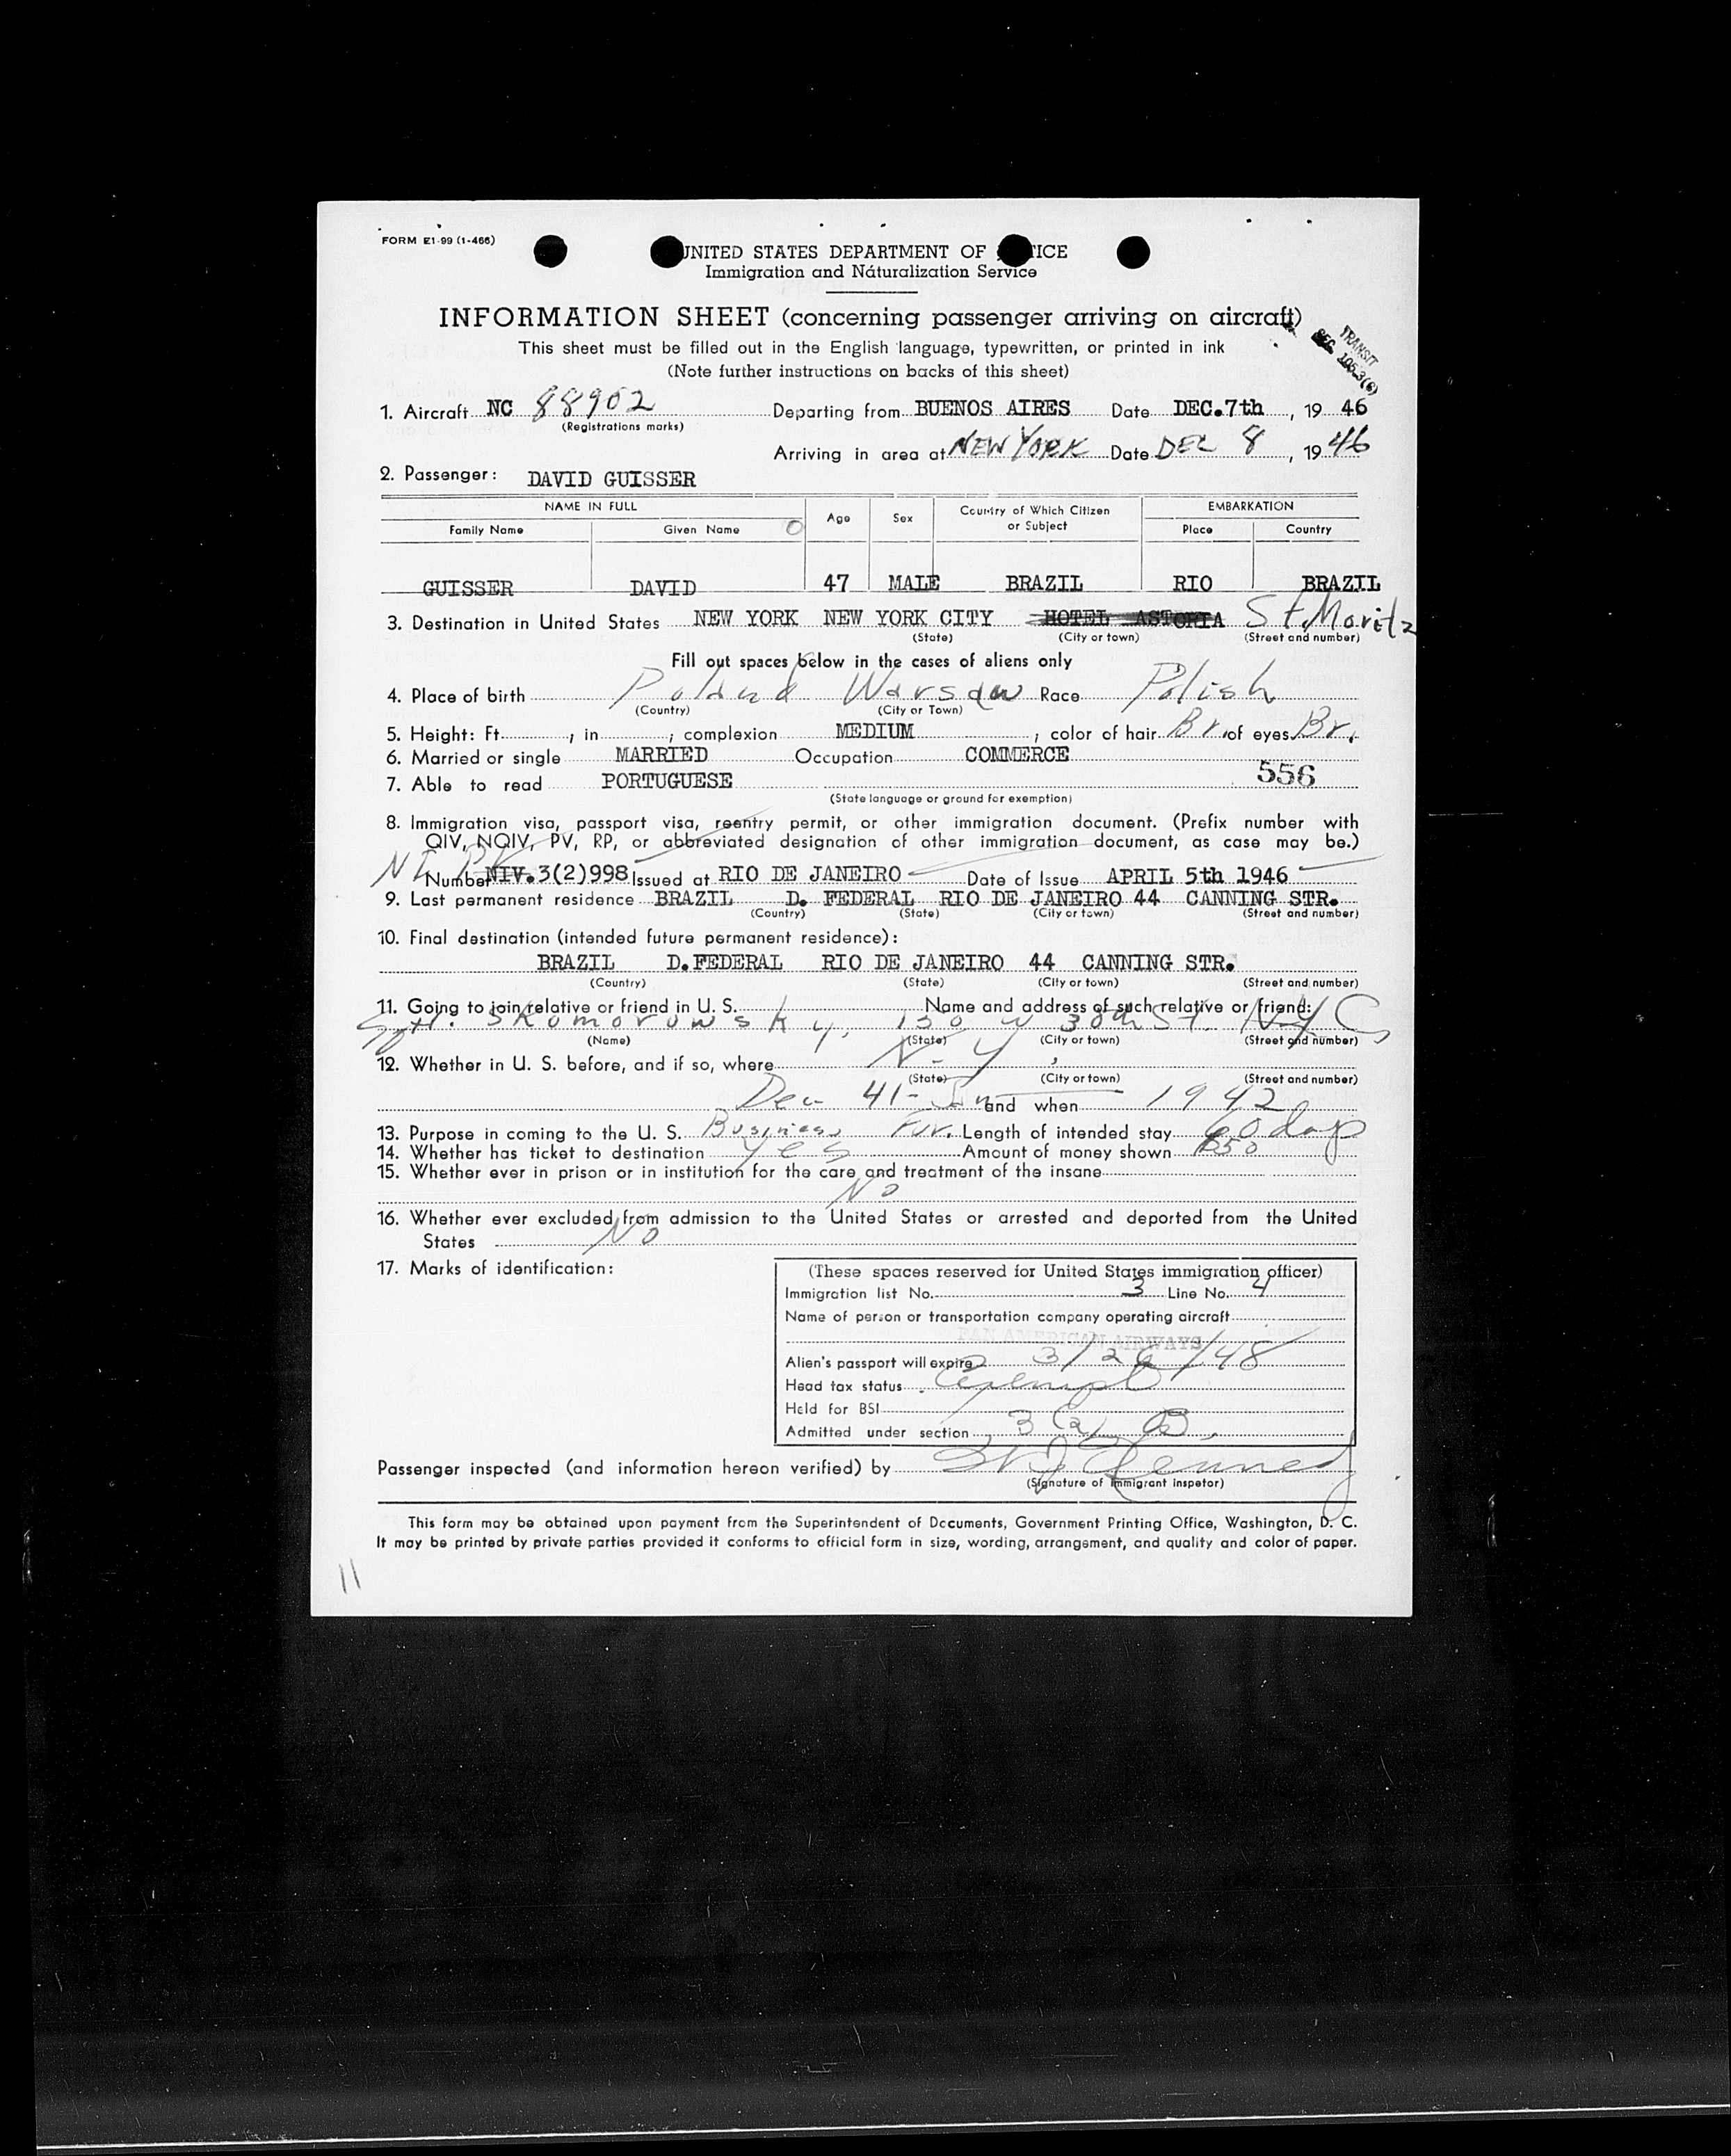 FORM E1-99 (1-466)
UNITED STATES DEPARTMENT OF TICE
Immigration and Naturalization Service
INFORMATION SHEET (concerning passenger arriving on aircraft)
TRANSIT
SEC. 105.3(6)
This sheet must be filled out in the English language, typewritten, or printed in ink
(Note further instructions on backs of this sheet)
1. Aircraft NC 88902 Departing from BUENOS AIRES Date DEC.7th, 19 46
(Registrations marks)
Arriving in area at NEW YORK Date DEC 8, 19 46
2. Passenger: DAVID GUISSER
NAME IN FULL Age Sex Country of Which Citizen or Subject EMBARKATION
Family Name Given Name Place Country
GUISSER DAVID 47 MALE BRAZIL RIO BRAZIL
3. Destination in United States NEW YORK NEW YORK CITY HOTEL ASTORIA St. Moritz
(State) (City or town) (Street and number)
Fill out spaces below in the cases of aliens only
4. Place of birth Poland Warsaw Race Polish
(Country) (City or Town)
5. Height: Ft. , in ; complexion MEDIUM , color of hair Br. of eyes Br.
6. Married or single MARRIED Occupation COMMERCE
7. Able to read PORTUGUESE 556
(State language or ground for exemption)
8. Immigration visa, passport visa, reentry permit, or other immigration document. (Prefix number with
QIV, NQIV, PV, RP, or abbreviated designation of other immigration document, as case may be.)
NI PV
Number NIV. 3(2)998 Issued at RIO DE JANEIRO Date of Issue APRIL 5th 1946
9. Last permanent residence BRAZIL D. FEDERAL RIO DE JANEIRO 44 CANNING STR.
(Country) (State) (City or town) (Street and number)
10. Final destination (intended future permanent residence):
BRAZIL D.FEDERAL RIO DE JANEIRO 44 CANNING STR.
(Country) (State) (City or town) (Street and number)
11. Going to join relative or friend in U. S. Name and address of such relative or friend:
Skomorowsky, 150 W 30th St. NYC
(Name) (State) (City or town) (Street and number)
12. Whether in U. S. before, and if so, where N-Y
(State) (City or town) (Street and number)
Dec 41- Jan and when 1942
13. Purpose in coming to the U. S. Business Fur. Length of intended stay 60 days
14. Whether has ticket to destination yes Amount of money shown
15. Whether ever in prison or in institution for the care and treatment of the insane
No
16. Whether ever excluded from admission to the United States or arrested and deported from the United
States No
17. Marks of identification:
(These spaces reserved for United States immigration officer)
Immigration list No. 3 Line No. 4
Name of person or transportation company operating aircraft
PAN AMERICAN AIRWAYS
Alien's passport will expire 3/26/48
Head tax status Exempt
Held for BSI
Admitted under section 3(2) B.
Passenger inspected (and information hereon verified) by Kennedy
(Signature of Immigrant inspetor)
This form may be obtained upon payment from the Superintendent of Documents, Government Printing Office, Washington, D. C.
It may be printed by private parties provided it conforms to official form in size, wording, arrangement, and quality and color of paper.
11